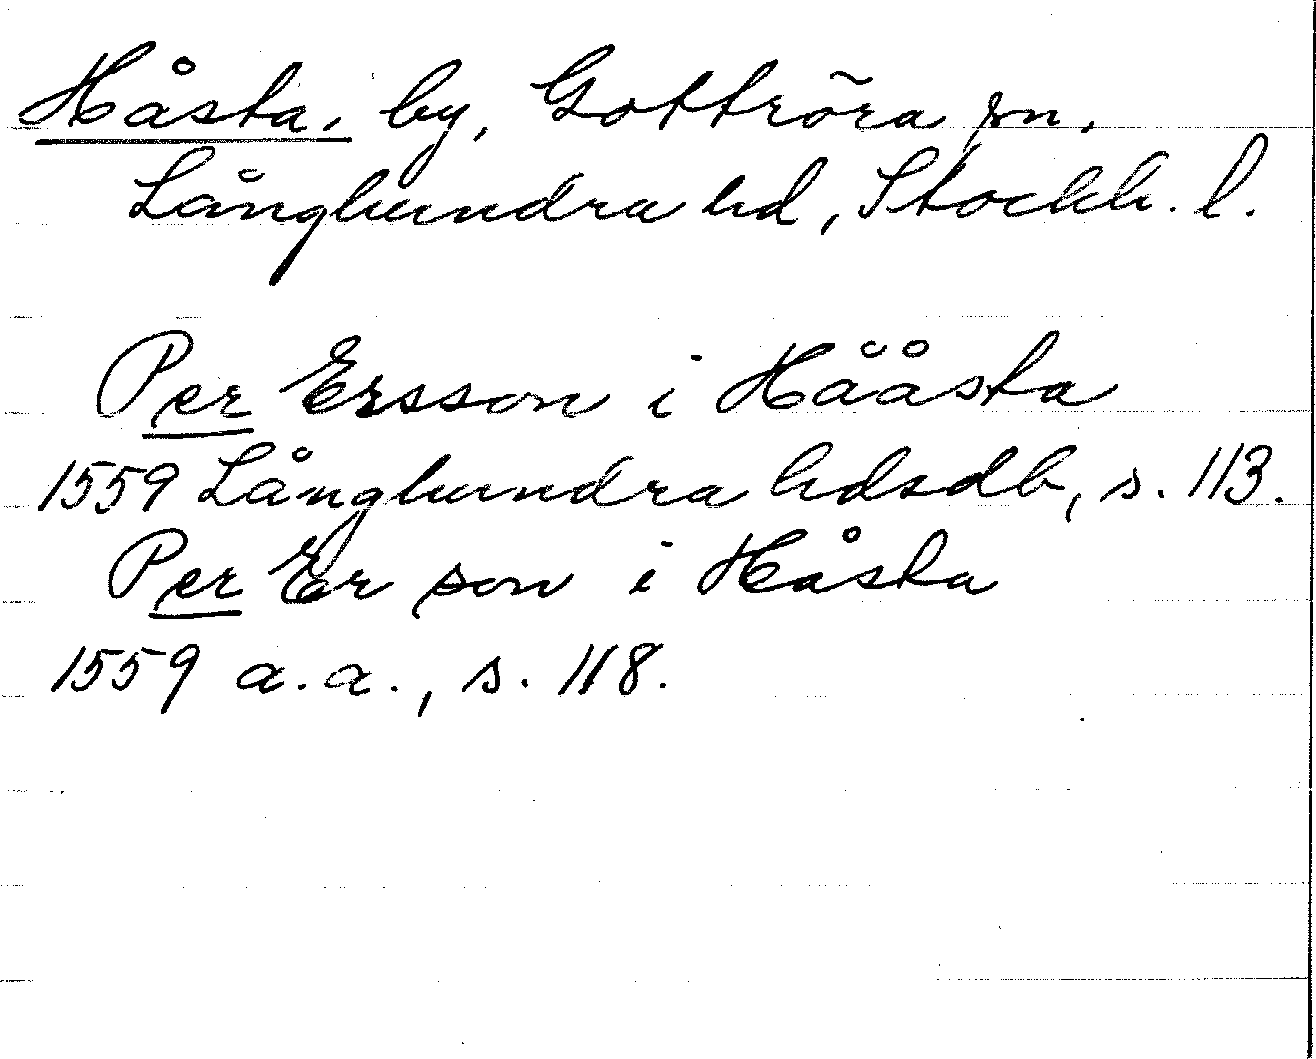 Håsta, by, Gottröra sn.
Långhundra hd, Stockh. l.
Per Ersson i Hååsta
1559 Långhundra hdsdb, s. 113.
Per Er son i Håsta
1559 a.a., s. 118.